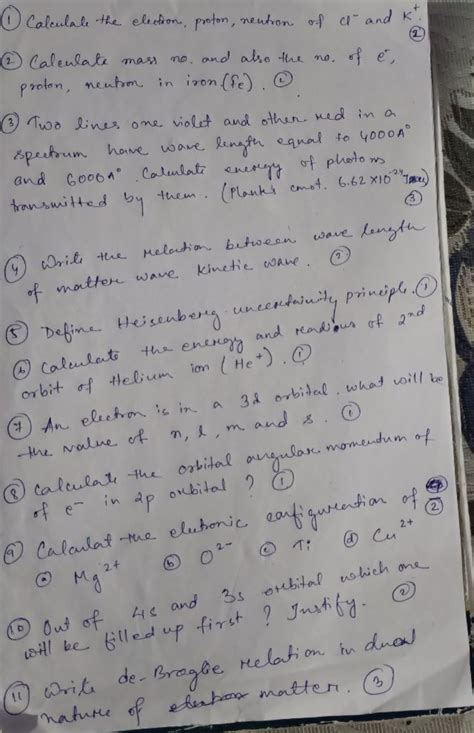 ① Calculate the electron, proton, neutron of Cl⁻ and K⁺. ②
② Calculate mass no. and also the no. of e⁻,
proton, neutron in iron (fe). ②
③ Two lines one violet and other red in a
spectrum have wave length equal to 4000A°
and 6000A°. Calculate energy of photons
transmitted by them. (Plank's const. 6.62 ×10⁻²⁴
③
④ Write the relation between wave length
of matter wave kinetic wave. ②
⑤ Define Heisenberg uncertainity principle. ①
⑥ Calculate the energy and readious of 2nd
orbit of Helium ion (He⁺). ①
⑦ An electron is in a 3d orbital, what will be
the value of n, l, m and s. ①
⑧ Calculate the orbital angular momentum of
of e⁻ in 2p orbital ? ①
⑨ Calculat the eletronic configuration of ②
ⓐ Mg²⁺ ⓑ O²⁻ ⓒ Ti ⓓ Cu²⁺
⑩ Out of 4s and 3s orbital which one
will be filled up first ? Justify. ②
⑪ Write de-Broglie relation in dual
nature of matter. ③